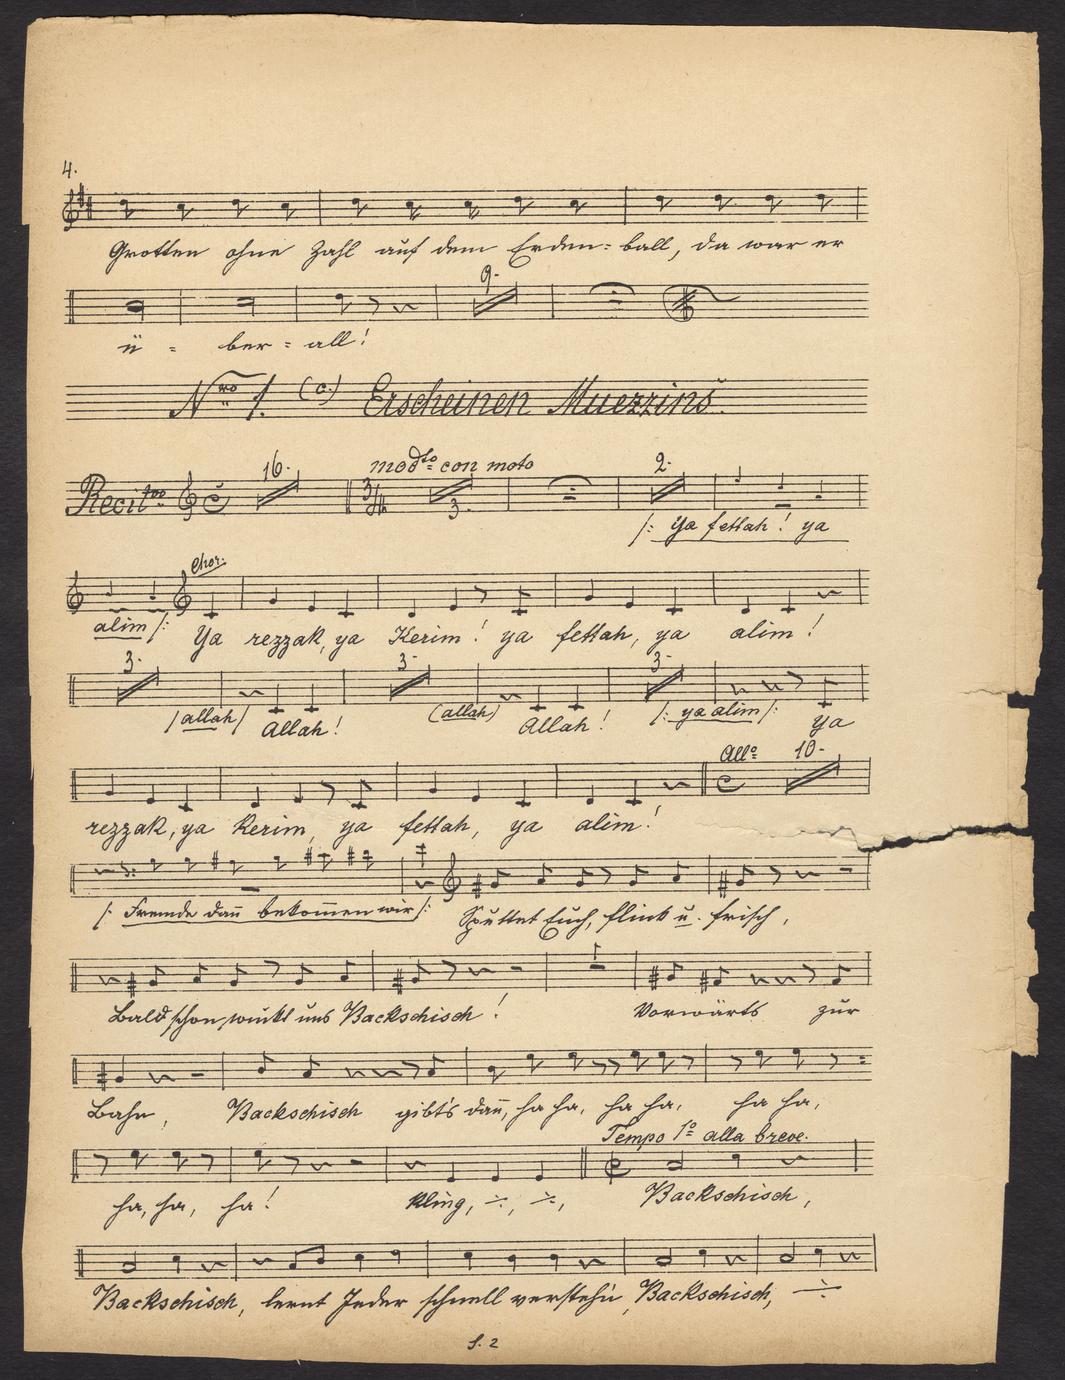 4.
Grotten ohne Zahl auf dem Erden= ball, da war er
9.
ü = ber = all!
Nro 1. (c.) Erscheinen Muezzins.
Recit.tvo 16. modto con moto 3/4 3. 2.
/: Ya fettah! ya
Chor.
alim :/ Ya rezzak, ya Kerim! ya fettah, ya alim!
3. 3. 3.
(allah) Allah! (allah) Allah! /: ya alim :/ Ya
Allo 10.
rezzak, ya Kerim, ya fettah, ya alim!
/: Fremde dan̄ bekom̄en wir :/ Sputtet Euch, flink u. frisch,
Bald schon winkt uns Backschisch! Vorwärts zur
Bahn, Backschisch gibt's dan̄, ha ha, ha ha, ha ha,
Tempo 1o alla breve.
ha, ha, ha! Kling, ·/·, ·/·, Backschisch,
Backschisch, lernt Jeder schnell versteh'n, Backschisch, ·/·
S. 2